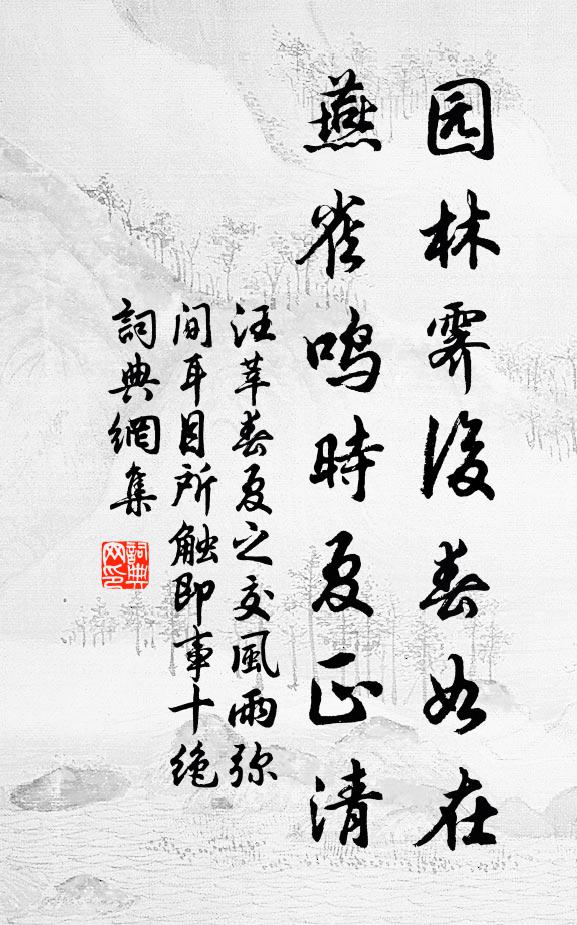 园林霁後春如在
燕雀鸣時夏正清
汪莘春夏之交風雨弥
间耳目所触即事十绝
詞典網集
詞典
网印